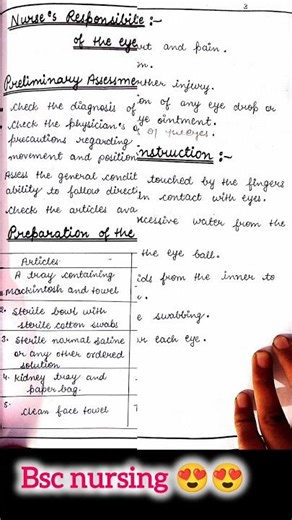 3
Nurse's Responsibile :-
of the eye
rt and pain.
m.
Preliminary Assessme
ther injury.
Check the diagnosis of
on of any eye drop or
Check the physician's
ye ointment.
precautions regarding
movement and position
instruction :-
Assess the general condit
touched by the fingers
ability to follow directi
in contact with eyes.
Check the articles ava
xcessive water from the
Preparation of the
the eye ball.
Articles
A tray containing
ids from the inner to
mackintosh and towel
2. Sterile bowl with
e swabbing.
sterile cotton swabs
3. Sterile normal saline
or each eye.
or any other ordered
solution
4. Kidney tray and
paper bag.
5.
clean face towel
Bsc nursing 😍😍